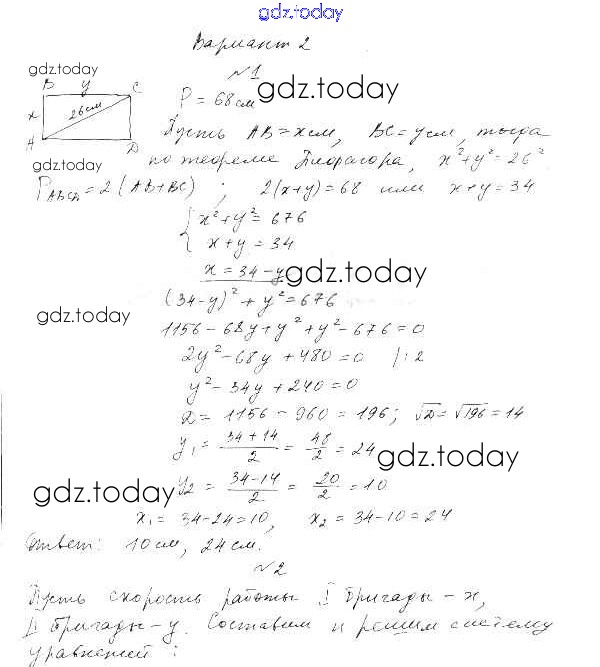 gdz.today
Вариант 2
№1
gdz.today
B y C
x 26 см
A D
P = 68 см gdz.today
Пусть AB = x см, BC = y см, тогда
gdz.today по теореме Пифагора, x² + y² = 26²
P_ABCD = 2(AB+BC) ; 2(x+y) = 68 или x+y = 34
{ x² + y² = 676
x + y = 34
x = 34 - y gdz.today
(34-y)² + y² = 676
gdz.today
1156 - 68y + y² + y² - 676 = 0
2y² - 68y + 480 = 0 /: 2
y² - 34y + 240 = 0
D = 1156 - 960 = 196; √D = √196 = 14
y₁ = (34+14)/2 = 48/2 = 24 gdz.today
gdz.today y₂ = (34-14)/2 = 20/2 = 10
x₁ = 34-24 = 10, x₂ = 34-10 = 24
Ответ: 10 см, 24 см.
№2
Пусть скорость работы I бригады - x,
II бригады - y. Составим и решим систему
уравнений: